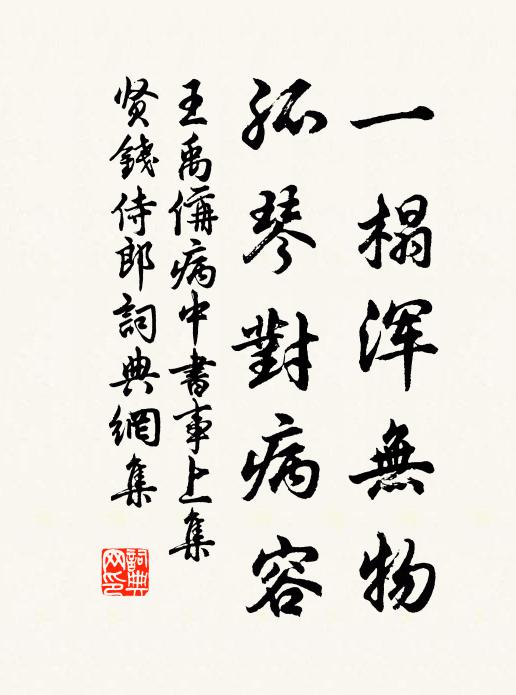 一榻浑無物
孤琴對病容
王禹偁病中書事上集
贤錢侍郎詞典網集
詞典
网印